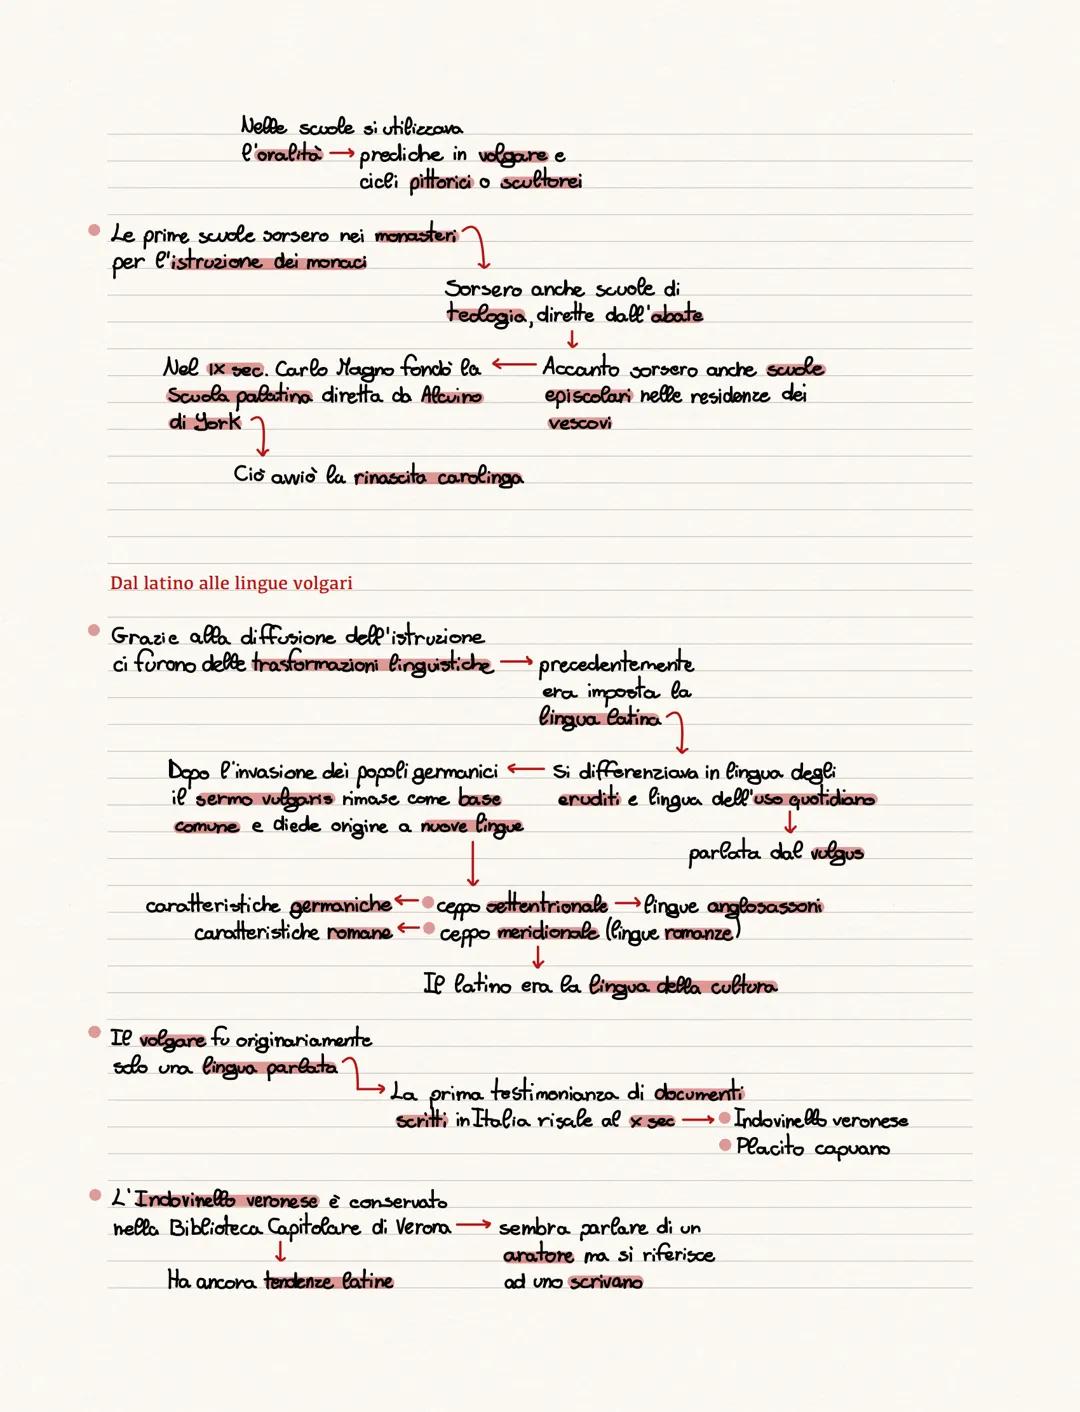 Nelle scuole si utilizzava
l'oralità → prediche in volgare e
cicli pittorici o scultorei
Le prime scuole sorsero nei monasteri
per l'istruzione dei monaci
Sorsero anche scuole di
teologia, dirette dall'abate
Nel IX sec. Carlo Magno fondò la ← Accanto sorsero anche scuole
Scuola palatina diretta da Alcuino episcolari nelle residenze dei
di York vescovi
Ciò avviò la rinascita carolinga
Dal latino alle lingue volgari
Grazie alla diffusione dell'istruzione
ci furono delle trasformazioni linguistiche → precedentemente
era imposta la
lingua latina
Dopo l'invasione dei popoli germanici ← Si differenziava in lingua degli
il sermo vulgaris rimase come base eruditi e lingua dell'uso quotidiano
comune e diede origine a nuove lingue
parlata dal vulgus
caratteristiche germaniche ← • ceppo settentrionale → lingue anglosassoni
caratteristiche romane ← • ceppo meridionale (lingue romanze)
Il latino era la lingua della cultura
Il volgare fu originariamente
solo una lingua parlata
La prima testimonianza di documenti
scritti in Italia risale al X sec → • Indovinello veronese
• Placito capuano
L'Indovinello veronese è conservato
nella Biblioteca Capitolare di Verona → sembra parlare di un
aratore ma si riferisce
Ha ancora tendenze latine ad uno scrivano